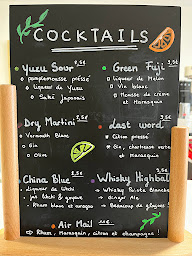 COCKTAILS
Yuzu Sour 9,5€
pamplemousse pressé
Liqueur de Yuzu
Saké Japonais
Green Fuji 9,5€
Liqueur de Melon
Vin blanc
Mousse de crème
et Marasquin
Dry Martini 9,5€
Vermouth Blanc
Gin
Olive
Last word 9,5€
Citron pressé
Gin, chartreuse verte
et Marasquin
China Blue
Liqueur de litchi
jus litchi & goyave
Rhum blanc et curaçao
Whisky Highball
Whisky Pointe Blanche
Ginger Ale
Beaucoup de glaçons!
Air Mail
Rhum, Marasquin, citron et champagne!